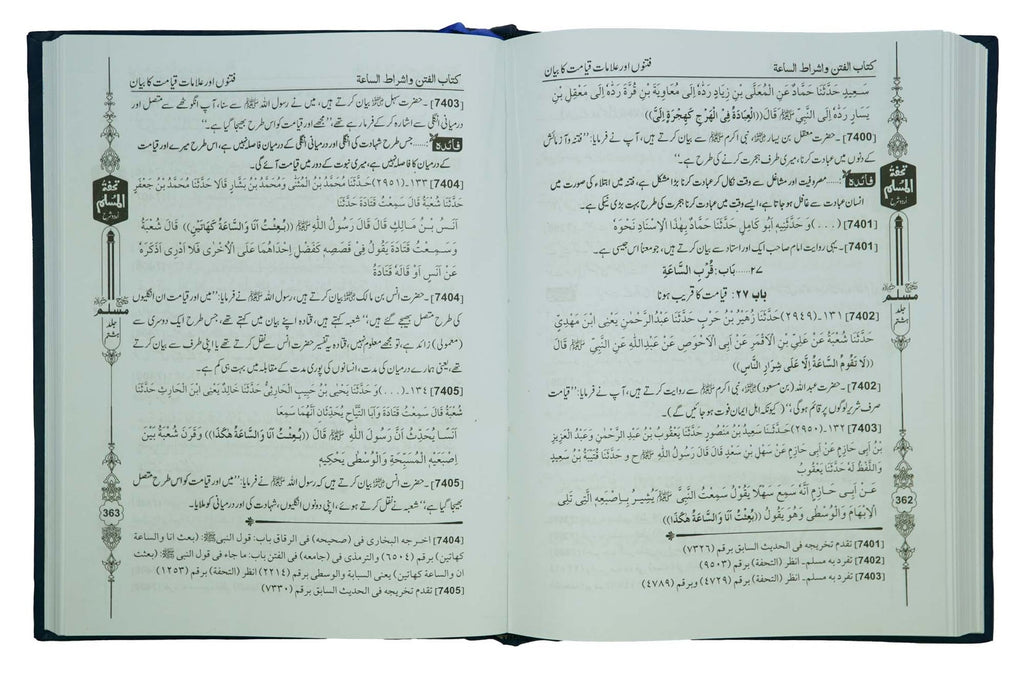 کتاب الفتن واشراط الساعة
فتنوں اور علامات قیامت کا بیان
سَعِیدٍ حَدَّثَنَا حَمَّادٌ عَنِ الْمُعَلَّی بْنِ زِیَادٍ رَدَّهُ إِلَی مُعَاوِیَةَ بْنِ قُرَّةَ رَدَّهُ إِلَی مَعْقِلِ بْنِ
یَسَارٍ رَدَّهُ إِلَی النَّبِیِّ ﷺ قَالَ ((الْعِبَادَةُ فِی الْهَرْجِ كَهِجْرَةٍ إِلَیَّ))
[7400]۔ حضرت معقل بن یسار بیان کرتے ہیں، نبی اکرم ﷺ نے فرمایا: ’’فتنہ و آزمائش
کے دنوں میں عبادت کرنا، میری طرف ہجرت کرنے کی طرح ہے۔‘‘
فائدہ:...... مصروفیت اور مشاغل سے وقت نکال کر عبادت کرنا بڑا مشکل ہے، فتنہ میں ابتلاء کی صورت میں
انسان عبادت سے غافل ہو جاتا ہے، ایسے وقت میں عبادت کرنا ہجرت کی طرح بہت بڑی نیکی ہے۔
[7401] (...) و حَدَّثَنِیهِ أَبُو کَامِلٍ حَدَّثَنَا حَمَّادٌ بِهَذَا الْإِسْنَادِ نَحْوَهُ
[7401]۔ یہی روایت امام صاحب ایک اور استاد سے بیان کرتے ہیں، جو معنا اس جیسی ہے۔
۲۷......بَاب: قُرْبِ السَّاعَةِ
باب ۲۷: قیامت کا قریب ہونا
[7402] ۱۳۱۔(۲۹۴۹) حَدَّثَنَا زُهَیْرُ بْنُ حَرْبٍ حَدَّثَنَا عَبْدُالرَّحْمٰنِ یَعْنِی ابْنَ مَهْدِیٍّ
حَدَّثَنَا شُعْبَةُ عَنْ عَلِیِّ بْنِ الْأَقْمَرِ عَنْ أَبِی الْأَحْوَصِ عَنْ عَبْدِاللهِ عَنِ النَّبِیِّ ﷺ قَالَ
((لَا تَقُومُ السَّاعَةُ إِلَّا عَلَی شِرَارِ النَّاسِ))
[7402] ۔ حضرت عبداللہ (بن مسعود) نبی اکرم ﷺ سے روایت کرتے ہیں، آپ نے فرمایا: ’’قیامت
صرف شریر لوگوں پر قائم ہوگی‘‘ (کیونکہ اہل ایمان فوت ہو جائیں گے)۔
[7403] ۱۳۲۔(۲۹۵۰) حَدَّثَنَا سَعِیدُ بْنُ مَنْصُورٍ حَدَّثَنَا یَعْقُوبُ بْنُ عَبْدِ الرَّحْمٰنِ وَعَبْدُ الْعَزِیزِ
بْنُ أَبِی حَازِمٍ عَنْ أَبِی حَازِمٍ عَنْ سَهْلِ بْنِ سَعْدٍ قَالَ قَالَ رَسُولُ اللهِ ﷺ ح و حَدَّثَنَا قُتَیْبَةُ بْنُ سَعِیدٍ
وَاللَّفْظُ لَهُ حَدَّثَنَا یَعْقُوبُ
عَنْ أَبِی حَازِمٍ أَنَّهُ سَمِعَ سَهْلًا یَقُولُ سَمِعْتُ النَّبِیَّ ﷺ یُشِیرُ بِإِصْبَعِهِ الَّتِی تَلِی
الْإِبْهَامَ وَالْوُسْطَی وَهُوَ یَقُولُ ((بُعِثْتُ أَنَا وَالسَّاعَةُ هٰکَذَا))
[7401] تقدم تخریجه فی الحدیث السابق برقم (۷۳۲۶)
[7402] تفرد به مسلم۔ انظر (التحفة) برقم (۹۵۰۳)
[7403] تفرد به مسلم۔ انظر (التحفة) برقم (۴۷۲۹) وبرقم (۴۷۸۹)
تحفة
المسلم
اردو شرح
صحیح
مسلم
جلد
ہشتم
362
کتاب الفتن واشراط الساعة
فتنوں اور علامات قیامت کا بیان
[7403]۔ حضرت سہل بیان کرتے ہیں، میں نے رسول اللہ ﷺ سے سنا، آپ انگوٹھے سے متصل اور
درمیانی انگلی سے اشارہ کر کے فرما رہے تھے، ’’مجھے اور قیامت کو اس طرح بھیجا گیا ہے۔‘‘
فائدہ:...... جس طرح شہادت کی انگلی اور درمیانی انگلی میں فاصلہ نہیں ہے، اس طرح میرے اور قیامت
کے درمیان کا فاصلہ نہیں ہے، میری نبوت کے دور میں قیامت آئے گی۔
[7404] ۱۳۳۔(۲۹۵۱) حَدَّثَنَا مُحَمَّدُ بْنُ الْمُثَنّٰی وَمُحَمَّدُ بْنُ بَشَّارٍ قَالَا حَدَّثَنَا مُحَمَّدُ بْنُ جَعْفَرٍ
حَدَّثَنَا شُعْبَةُ قَالَ سَمِعْتُ قَتَادَةَ حَدَّثَنَا
أَنَسُ بْنُ مَالِكٍ قَالَ قَالَ رَسُولُ اللهِ ﷺ ((بُعِثْتُ أَنَا وَالسَّاعَةُ کَهَاتَیْنِ)) قَالَ شُعْبَةُ
وَسَمِعْتُ قَتَادَةَ یَقُولُ فِی قَصَصِهِ کَفَضْلِ إِحْدَاهُمَا عَلَی الْأُخْرٰی فَلَا أَدْرِی أَذَکَرَهُ
عَنْ أَنَسٍ أَوْ قَالَهُ قَتَادَةُ
[7404] ۔ حضرت انس بن مالک بیان کرتے ہیں، رسول اللہ ﷺ نے فرمایا: ’’میں اور قیامت ان انگلیوں
کی طرح متصل بھیجے گئے ہیں‘‘، شعبہ کہتے ہیں، قتادہ اپنے بیان میں کہتے تھے، جس طرح ایک دوسری سے
(معمولی) زائد ہے، تو مجھے معلوم نہیں، قتادہ یہ تفسیر حضرت انس سے نقل کرتے تھے یا اپنی طرف سے بیان کرتے
تھے، یعنی ہمارے درمیان کی مدت، انسانوں کی پوری مدت کے مقابلہ میں بہت ہی کم ہے۔
[7405] ۱۳۴۔(...) و حَدَّثَنَا یَحْیَی بْنُ حَبِیبٍ الْحَارِثِیُّ حَدَّثَنَا خَالِدٌ یَعْنِی ابْنَ الْحَارِثِ حَدَّثَنَا
شُعْبَةُ قَالَ سَمِعْتُ قَتَادَةَ وَأَبَا التَّیَّاحِ یُحَدِّثَانِ أَنَّهُمَا سَمِعَا
أَنَسًا یُحَدِّثُ أَنَّ رَسُولَ اللهِ ﷺ قَالَ ((بُعِثْتُ أَنَا وَالسَّاعَةُ هٰکَذَا)) وَقَرَنَ شُعْبَةُ بَیْنَ
إِصْبَعَیْهِ الْمُسَبِّحَةِ وَالْوُسْطَی یَحْکِیهِ
[7405] ۔ حضرت انس بیان کرتے ہیں کہ رسول اللہ ﷺ نے فرمایا: ’’میں اور قیامت کو اس طرح متصل
بھیجا گیا ہے، ‘‘ شعبہ نے نقل کرتے ہوئے، اپنی دونوں انگلیوں، شہادت کی اور درمیانی کو ملایا۔
[7404] اخرجه البخاری فی (صحیحه) فی الرقاق باب: قول النبی ﷺ: (بعثت انا والساعة
کهاتین) برقم (۶۵۰۴) والترمذی فی (جامعه) فی الفتن باب: ما جاء فی قول النبی ﷺ: (بعثت
ان والساعة کهاتین) یعنی السبابة والوسطی برقم (۲۲۱۴) انظر (التحفة) برقم (۱۲۵۳)
[7405] تقدم تخریجه فی الحدیث السابق برقم (۷۳۳۰)
تحفة
المسلم
اردو شرح
صحیح
مسلم
جلد
ہشتم
363